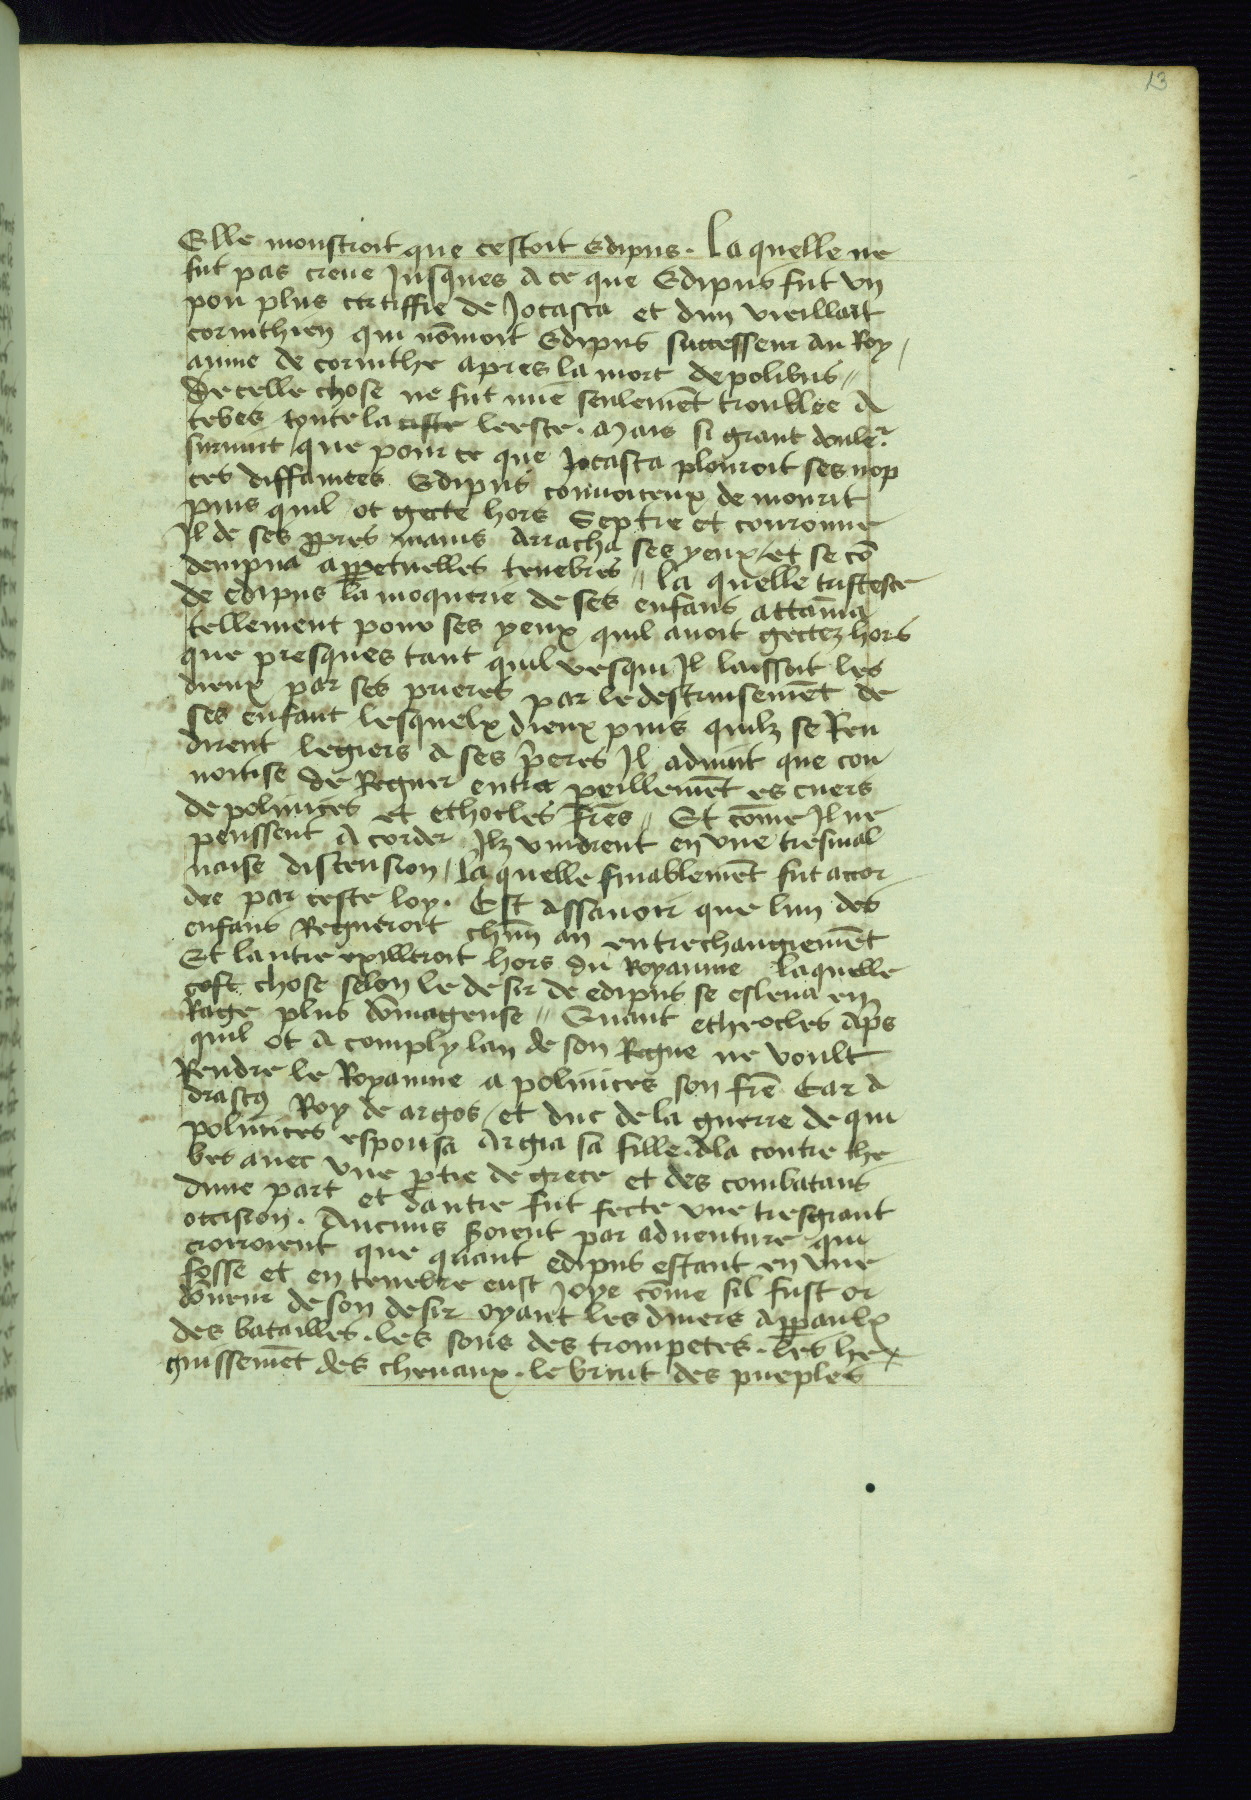 13
Elle monstroit que cestoit Edipus. La quelle ne
fut pas creue Jusques A ce que Edipus fut vn
pou plus certiffie de Jocasta et dun vieillart
corinthien qui nōmoit Edipus successeur au Roy
aume de corinthe apres la mort de polibus //
De celle chose ne fut mie seulemēt troublee A
tebes toute la leesce. Mais si grant
suruint que pour ce que Jocasta plouroit ses nop
ces diffamees Edipus conuoiteux de mourir
puis quil ot gecte hors Septre et couronne
Il de ses ꝓpres mains Arracha ses yeux / et se cō
dempna appetuelles tenebres // la quelle tristesce
de edipus la moquerie de ses enfans attama
tellement pour ses yeux quil auoit gectez hors
que presques tant quil vesqui Il laissoit les
dieux par ses prieres par le destruisemēt de
ses enfant lesquelx dieux puis quilz se Ren
dirent legiers A ses p̄eres Il aduint que con
uoitise de Regner entra peillemēt es cuers
de polinices et ethocles fr̄es // Et cōme Il ne
peussent A corder Ilz vindrent en vne tresmal
uaise discension / la quelle finablemēt fut accor
dee par ceste loy. Est Assauoir que lun des
enfans Regneroit chūn an entrechangiemēt
Et lautre hors du Royaume laquelle
chose selon le desir de edipus se esleua en
Rage plus dōmageuse // Quant etheocles ap̄s
quil ot A comply lan de son Regne ne voult
Rendre le Royaume a polinices son fr̄e Car A
drastꝰ Roy de argos / et duc de la guerre de qui
polinices espousa Argia sa fille. Ala contre the
bes auec vne ꝑtie de grece et des combatans
dune part et dautre fut fecte vne tresgrant
occision. Aucuns soient par aduenture qui
croiroient que quant edipus estant en vne
fosse et en tenebre eust Joye cōme sil fust or
dōneur de son desir oyant les diuers Appaulx
des batailles. les sons des trompetes. les he
guissemēt des cheuaux. le bruit des pueples